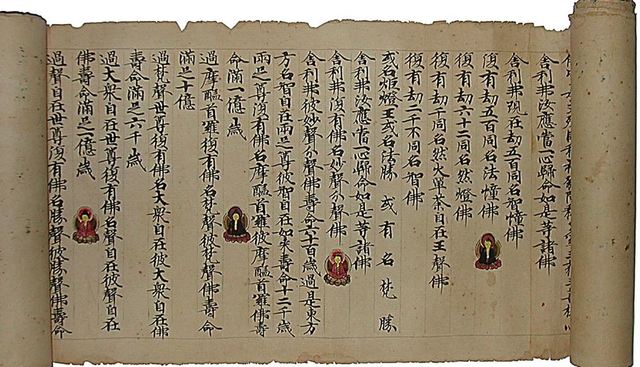 舍利弗汝應當一心歸命如是等諸佛
舍利弗現在劫五百同名智幢佛
復有劫五百同名法幢佛
復有劫六十二同名然燈佛
復有劫千同名然火單荼自在王聲佛
復有劫二千不同名智佛
或名炬燈王或名法勝 或有名梵勝
舍利弗汝應當一心歸命如是等諸佛
舍利弗復有佛名妙聲分聲佛
舍利弗彼妙聲分聲佛壽命六十百歲過是東方
方名智自在兩足尊彼智自在如來壽命十二千歲
兩足尊復有佛名摩醯首羅彼摩醯首羅佛壽
命滿一億歲
過摩醯首羅復有佛名梵聲彼梵聲佛壽命
滿足十億
過梵聲世尊復有佛名大衆自在彼大衆自在
壽命滿足六千歲
過大衆自在世尊復有佛名聲自在彼聲自在
佛壽命滿足一億歲
過聲自在世尊復有佛名勝聲彼勝聲佛壽命